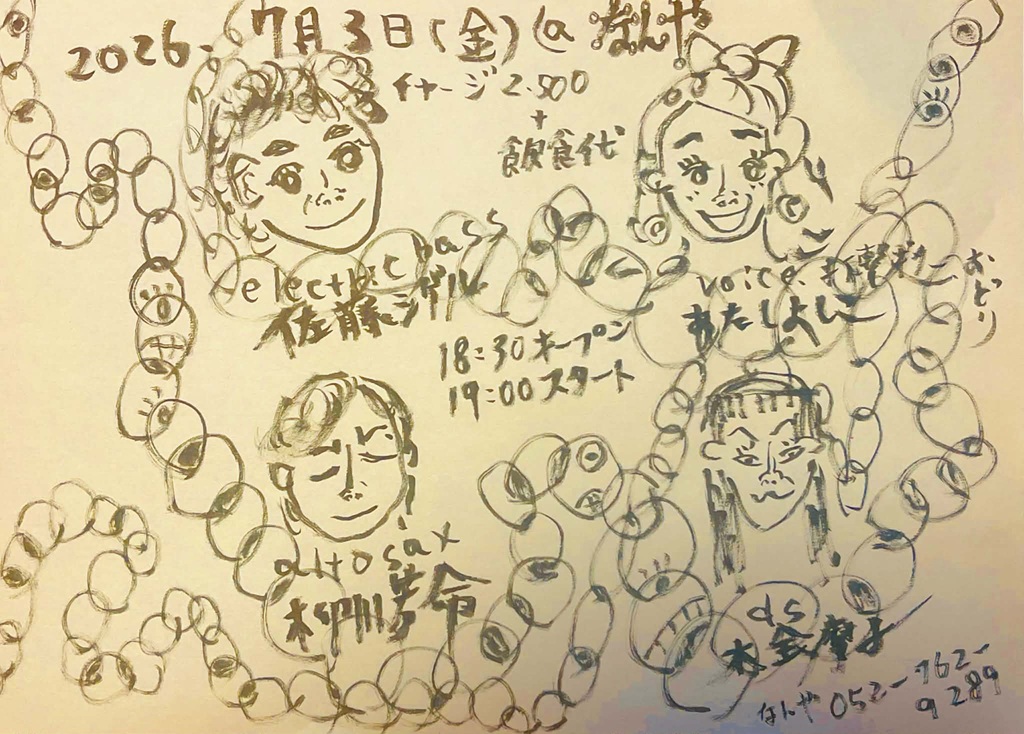 2026. 7月3日(金)@なんや
チャージ2.500
+
飲食代
electric bass
佐藤シゲル
voice. 打撃ギター おどり
あたしよしこ
18:30 オープン
19:00 スタート
altosax
柳川芳命
ds
木全摩子
なんや 052-762-9289